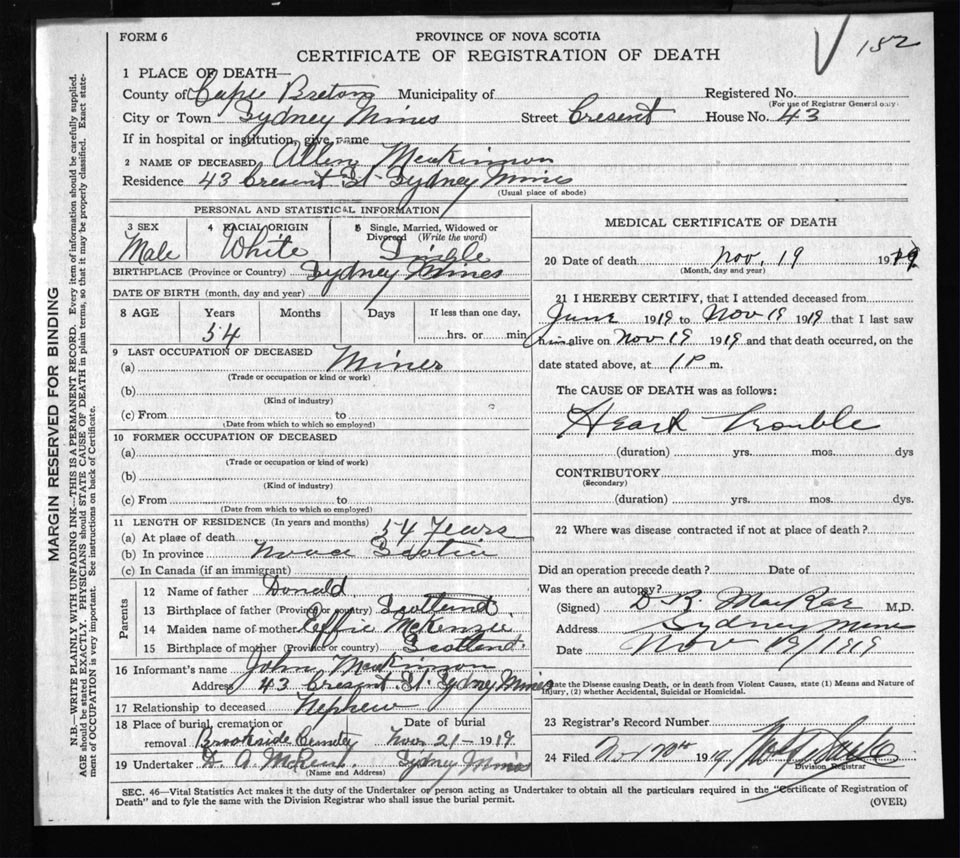 FORM 6
PROVINCE OF NOVA SCOTIA
CERTIFICATE OF REGISTRATION OF DEATH
152
1 PLACE OF DEATH—
County of Cape Breton Municipality of
Registered No.
(For use of Registrar General only)
City or Town Sydney Mines Street Cresent House No. 43
If in hospital or institution, give name
2 NAME OF DECEASED Allen MacKinnon
Residence 43 Cresent St. Sydney Mines
(Usual place of abode)
PERSONAL AND STATISTICAL INFORMATION
3 SEX 4 RACIAL ORIGIN 5 Single, Married, Widowed or Divorced (Write the word)
Male White Single
BIRTHPLACE (Province or Country) Sydney Mines
DATE OF BIRTH (month, day and year)
8 AGE Years Months Days If less than one day,
54 hrs. or min
9 LAST OCCUPATION OF DECEASED
(a) Miner
(Trade or occupation or kind or work)
(b)
(Kind of industry)
(c) From to
(Date from which to which so employed)
10 FORMER OCCUPATION OF DECEASED
(a)
(Trade or occupation or kind of work)
(b)
(Kind of industry)
(c) From to
(Date from which to which so employed)
11 LENGTH OF RESIDENCE (In years and months)
(a) At place of death 54 Years
(b) In province Nova Scotia
(c) In Canada (if an immigrant)
Parents
12 Name of father Donald
13 Birthplace of father (Province or country) Scotland
14 Maiden name of mother Effie McKenzie
15 Birthplace of mother (Province or country) Scotland.
16 Informant's name John MacKinnon
Address 43 Cresent St. Sydney Mines
17 Relationship to deceased Nephew
18 Place of burial, cremation or Date of burial
removal Brookside Cemetery Nov 21- 1919.
19 Undertaker D. A. Sydney Mines
(Name and Address)
MEDICAL CERTIFICATE OF DEATH
20 Date of death Nov. 19 1919.
(Month, day and year)
21 I HEREBY CERTIFY, that I attended deceased from
June 1919 to Nov 19 1919 that I last saw
him alive on Nov 19 1919 and that death occurred, on the
date stated above, at 1 P m.
The CAUSE OF DEATH was as follows:
Heart Trouble
(duration) yrs. mos. dys
CONTRIBUTORY
(Secondary)
(duration) yrs. mos. dys.
22 Where was disease contracted if not at place of death?
Did an operation precede death? Date of
Was there an autopsy?
(Signed) D. R. MacRae M.D.
Address Sydney Mines
Date Nov 19/1919
State the Disease causing Death, or in death from Violent Causes, state (1) Means and Nature of
Injury, (2) whether Accidental, Suicidal or Homicidal.
23 Registrar's Record Number
24 Filed Nov 20th 1919
Division Registrar
SEC. 46—Vital Statistics Act makes it the duty of the Undertaker or person acting as Undertaker to obtain all the particulars required in the "Certificate of Registration of
Death" and to fyle the same with the Division Registrar who shall issue the burial permit.
(OVER)
MARGIN RESERVED FOR BINDING
N.B.—WRITE PLAINLY WITH UNFADING INK—THIS IS A PERMANENT RECORD. Every item of information should be carefully supplied.
AGE should be stated EXACTLY. PHYSICIANS should STATE CAUSE OF DEATH in plain terms, so that it may be properly classified. Exact state-
ment of OCCUPATION is very important. See instructions on back of Certificate.